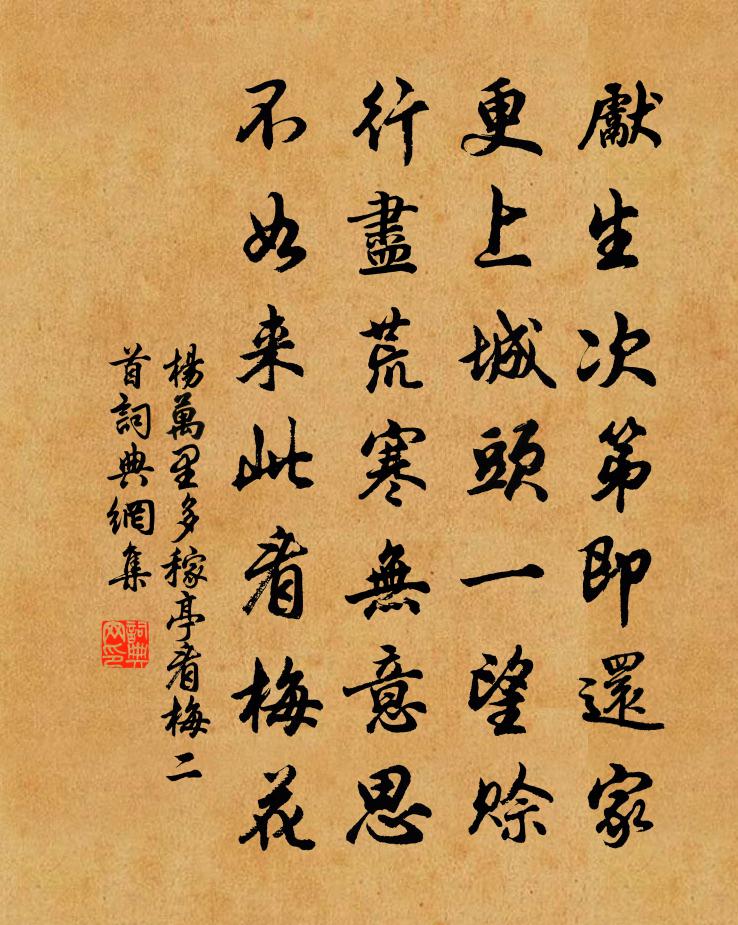 獻生次第即還家
更上城頭一望賒
行盡荒寒無意思
不如来此看梅花
楊萬里多稼亭看梅二
首詞典網集
詞典網印